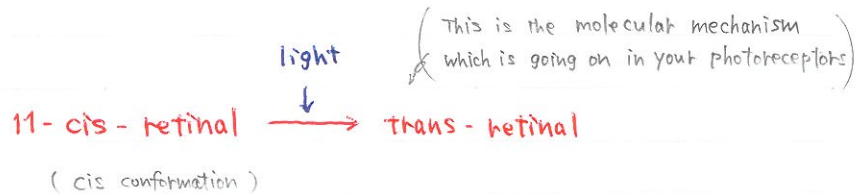 ( This is the molecular mechanism
which is going on in your photoreceptors)
light
11 - cis - retinal → trans - retinal
( cis conformation )